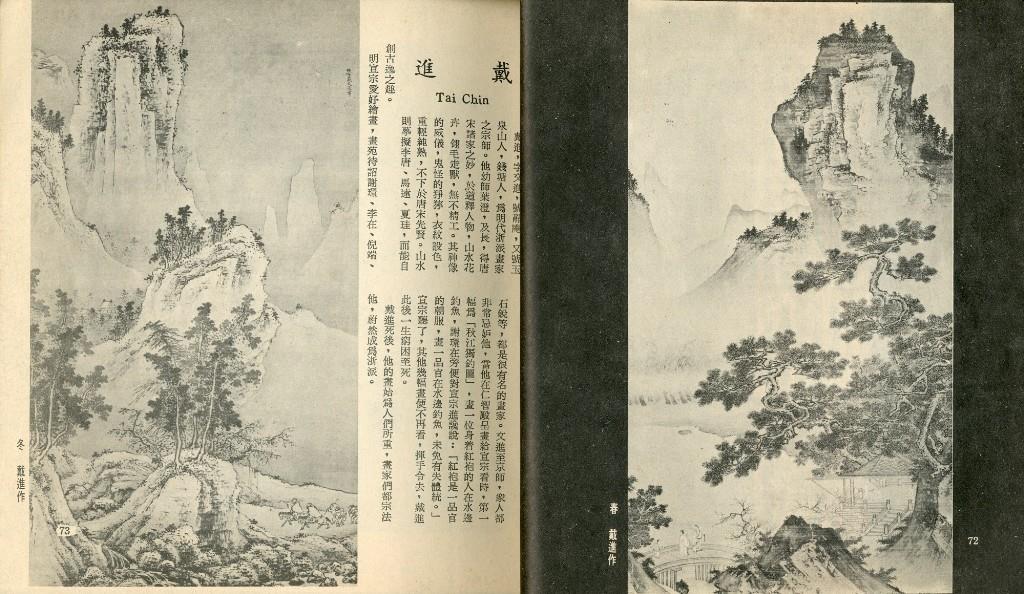 春　戴進作
72
戴　進
Tai Chin
戴進，字文進，號靜庵，又號玉
泉山人，錢塘人，為明代浙派畫家
之宗師。他幼師葉澄，及長，得唐
宋諸家之妙，於道釋人物，山水花
卉，翎毛走獸，無不精工。其神像
的威儀，鬼怪的猙獰，衣紋設色，
重輕純熟，不下於唐宋先賢。山水
則摹擬李唐、馬遠、夏珪，而能自
創古逸之趣。
明宣宗愛好繪畫，畫苑待詔謝環、李在、倪端、
石銳等，都是很有名的畫家。文進至京師，衆人都
非常忌妒他，當他在仁智殿呈畫給宣宗看時，第一
幅爲「秋江獨釣圖」，畫一位身着紅袍的人在水邊
釣魚，謝環在旁便對宣宗進讒說：「紅袍是一品官
的朝服，畫一品官在水邊釣魚，未免有失體統。」
宣宗聽了，其他幾幅畫便不再看，揮手令去，戴進
此後一生窮困至死。
戴進死後，他的畫始爲人們所重，畫家們都宗法
他，蔚然成爲浙派。
冬　戴進作
73